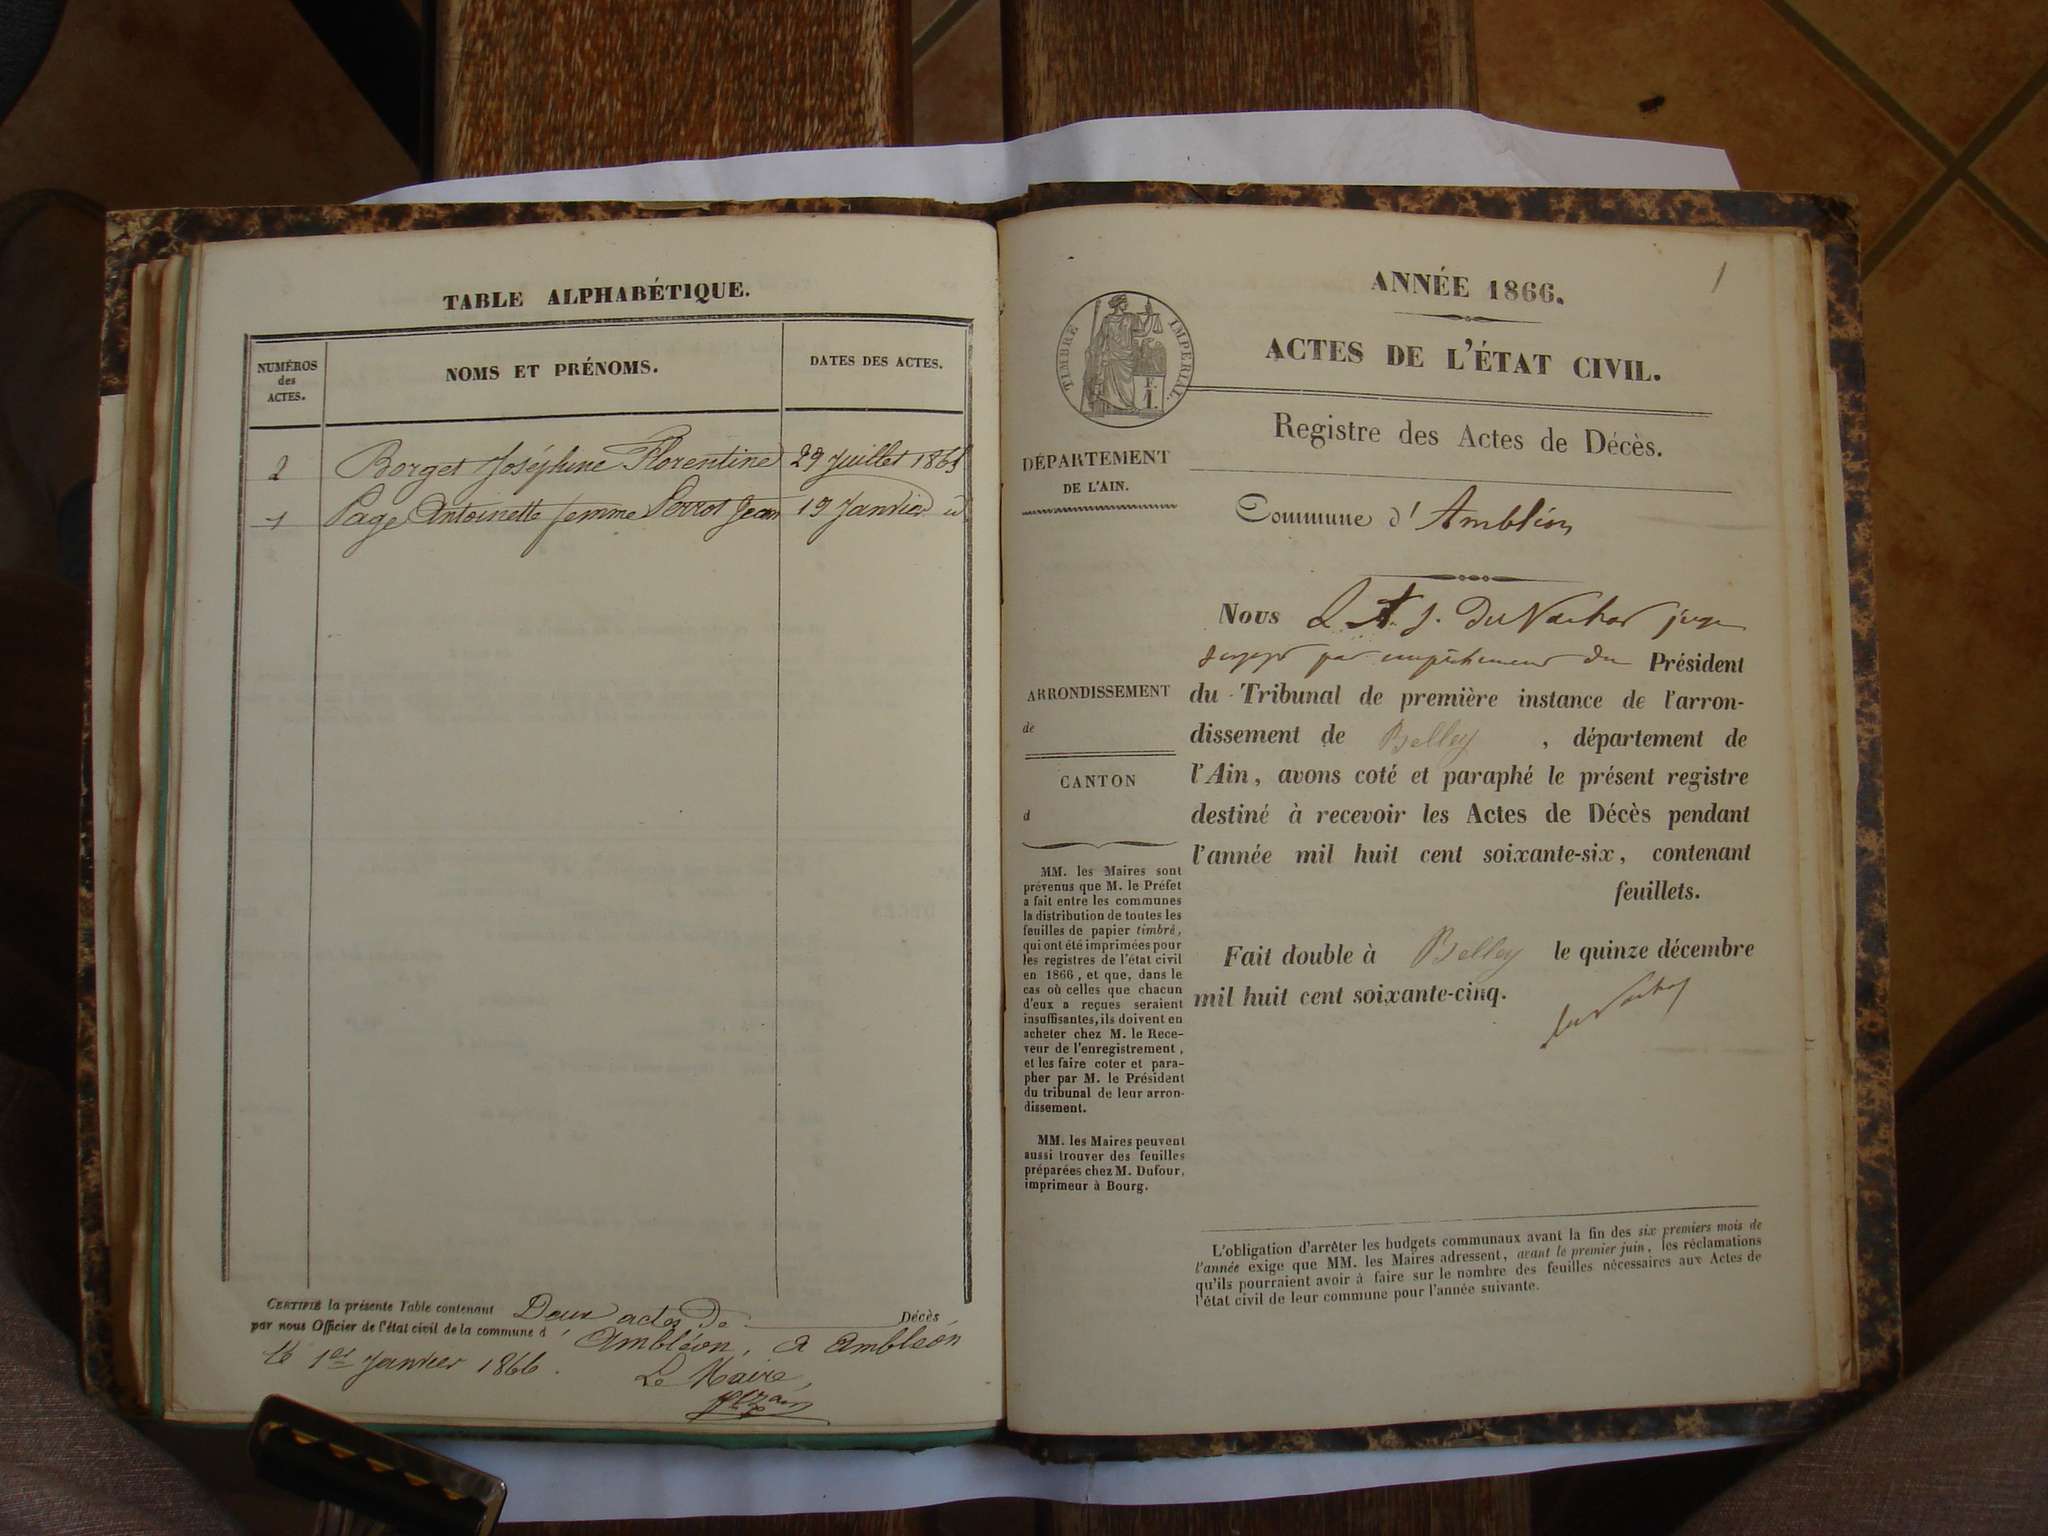 TABLE ALPHABÉTIQUE.
NUMÉROS
des
ACTES.
NOMS ET PRÉNOMS.
DATES DES ACTES.
2 Borget Joséphine Florentine 29 Juillet 1865
1 Page Antoinette femme Perrot Jean 19 Janvier id
CERTIFIÉ la présente Table contenant Deux actes de Décès
par nous Officier de l'état civil de la commune d'Ambléon, a Ambléon
le 1er Janvier 1866.
Le Maire,
1
ANNÉE 1866.
TIMBRE IMPÉRIAL.
F.
1.
ACTES DE L'ÉTAT CIVIL.
Registre des Actes de Décès.
DÉPARTEMENT
DE L'AIN.
Commune d'Ambléon
Nous juge
par empêchement du Président
du Tribunal de première instance de l'arron-
dissement de Belley, département de
l'Ain, avons coté et paraphé le présent registre
destiné à recevoir les Actes de Décès pendant
l'année mil huit cent soixante-six, contenant
feuillets.
Fait double à Belley le quinze décembre
mil huit cent soixante-cinq.
ARRONDISSEMENT
de
CANTON
d
MM. les Maires sont
prévenus que M. le Préfet
a fait entre les communes
la distribution de toutes les
feuilles de papier timbré,
qui ont été imprimées pour
les registres de l'état civil
en 1866, et que, dans le
cas où celles que chacun
d'eux a reçues seraient
insuffisantes, ils doivent en
acheter chez M. le Rece-
veur de l'enregistrement,
et les faire coter et para-
pher par M. le Président
du tribunal de leur arron-
dissement.
MM. les Maires peuvent
aussi trouver des feuilles
préparées chez M. Dufour,
imprimeur à Bourg.
L'obligation d'arrêter les budgets communaux avant la fin des six premiers mois de
l'année exige que MM. les Maires adressent, avant le premier juin, les réclamations
qu'ils pourraient avoir à faire sur le nombre des feuilles nécessaires aux Actes de
l'état civil de leur commune pour l'année suivante.